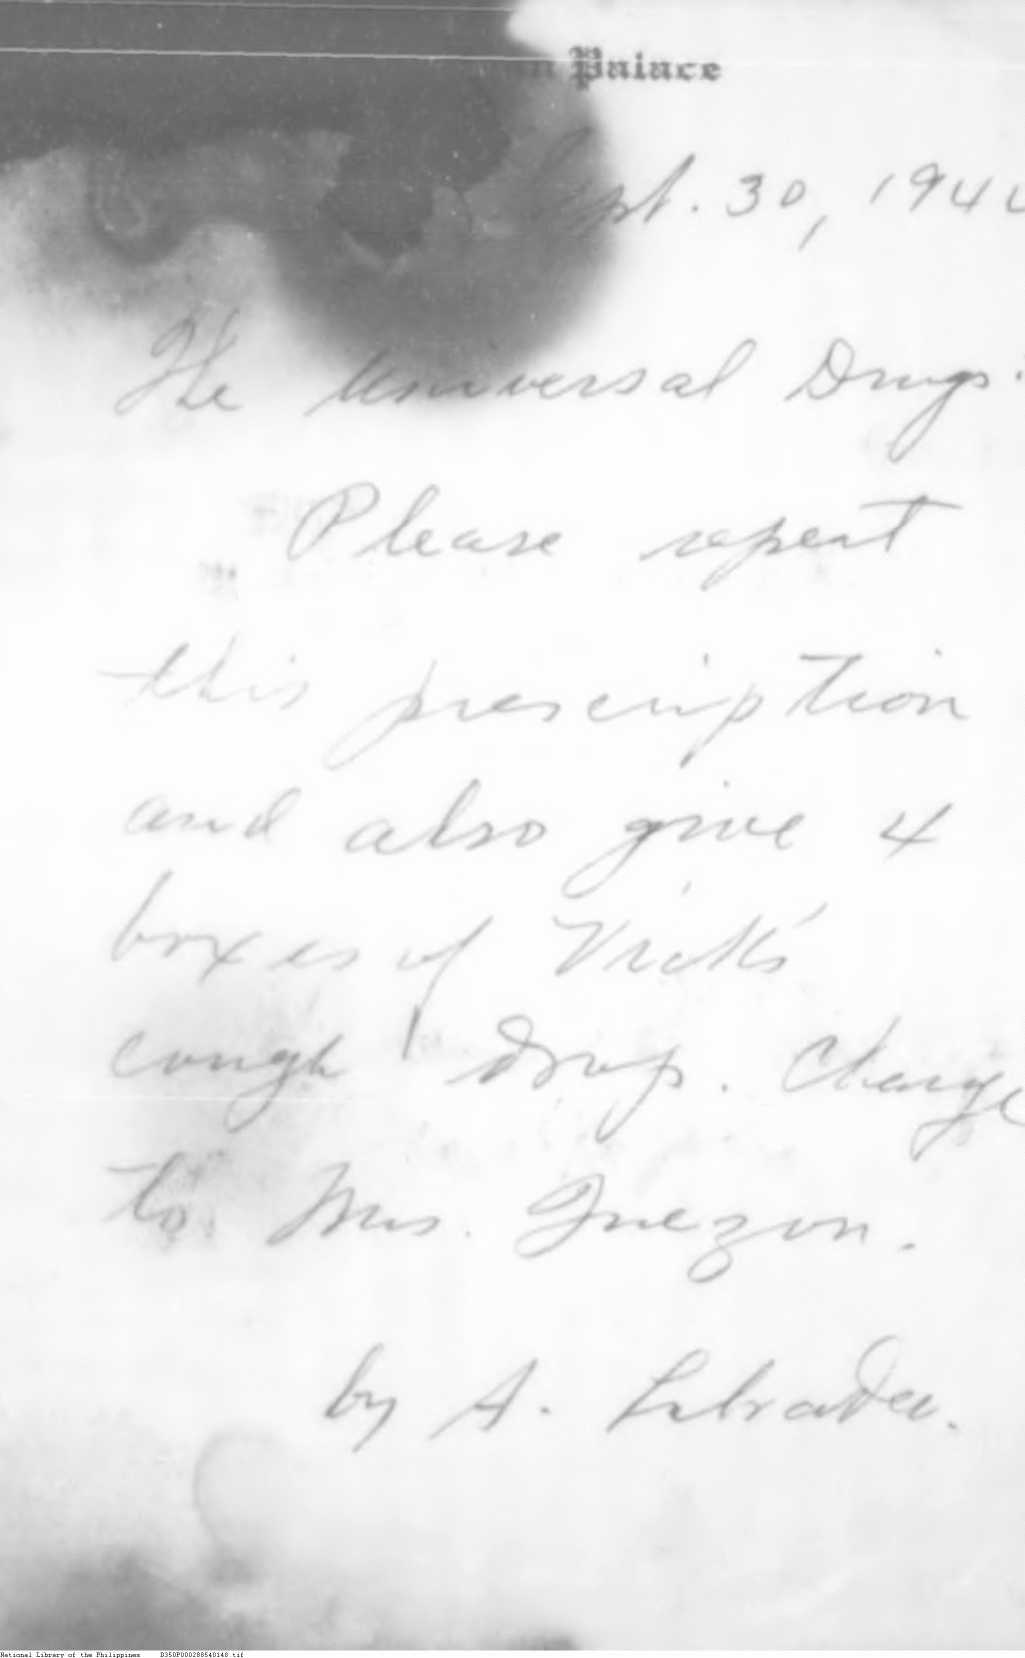 Palace
Sept. 30, 194
The Universal Drugs:
Please repeat
this prescription
and also give 4
boxes of Vick's
cough drop. Charge
to Mrs. Quezon.
by A.
National Library of the Philippines D350P000288540148.tif